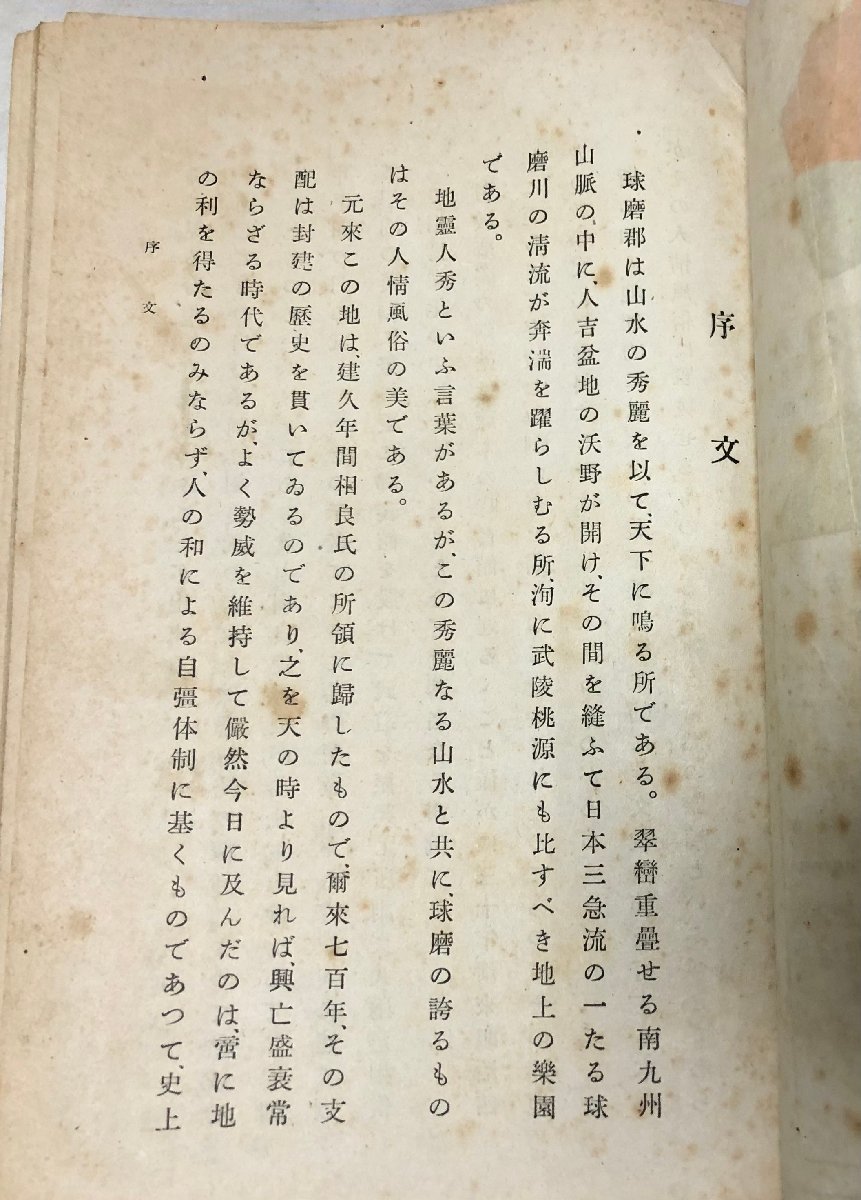 序文
球磨郡は山水の秀麗を以て、天下に鳴る所である。翠巒重疊せる南九州
山脈の中に、人吉盆地の沃野が開け、その間を縫ふて日本三急流の一たる球
磨川の淸流が奔湍を躍らしむる所、洵に武陵桃源にも比すべき地上の樂園
である。
地靈人秀といふ言葉があるが、この秀麗なる山水と共に、球磨の誇るもの
はその人情風俗の美である。
元來この地は、建久年間相良氏の所領に歸したもので、爾來七百年、その支
配は封建の歷史を貫いてゐるのであり、之を天の時より見れば、興亡盛衰常
ならざる時代であるが、よく勢威を維持して儼然今日に及んだのは、啻に地
の利を得たるのみならず、人の和による自彊体制に基くものであつて、史上
序文